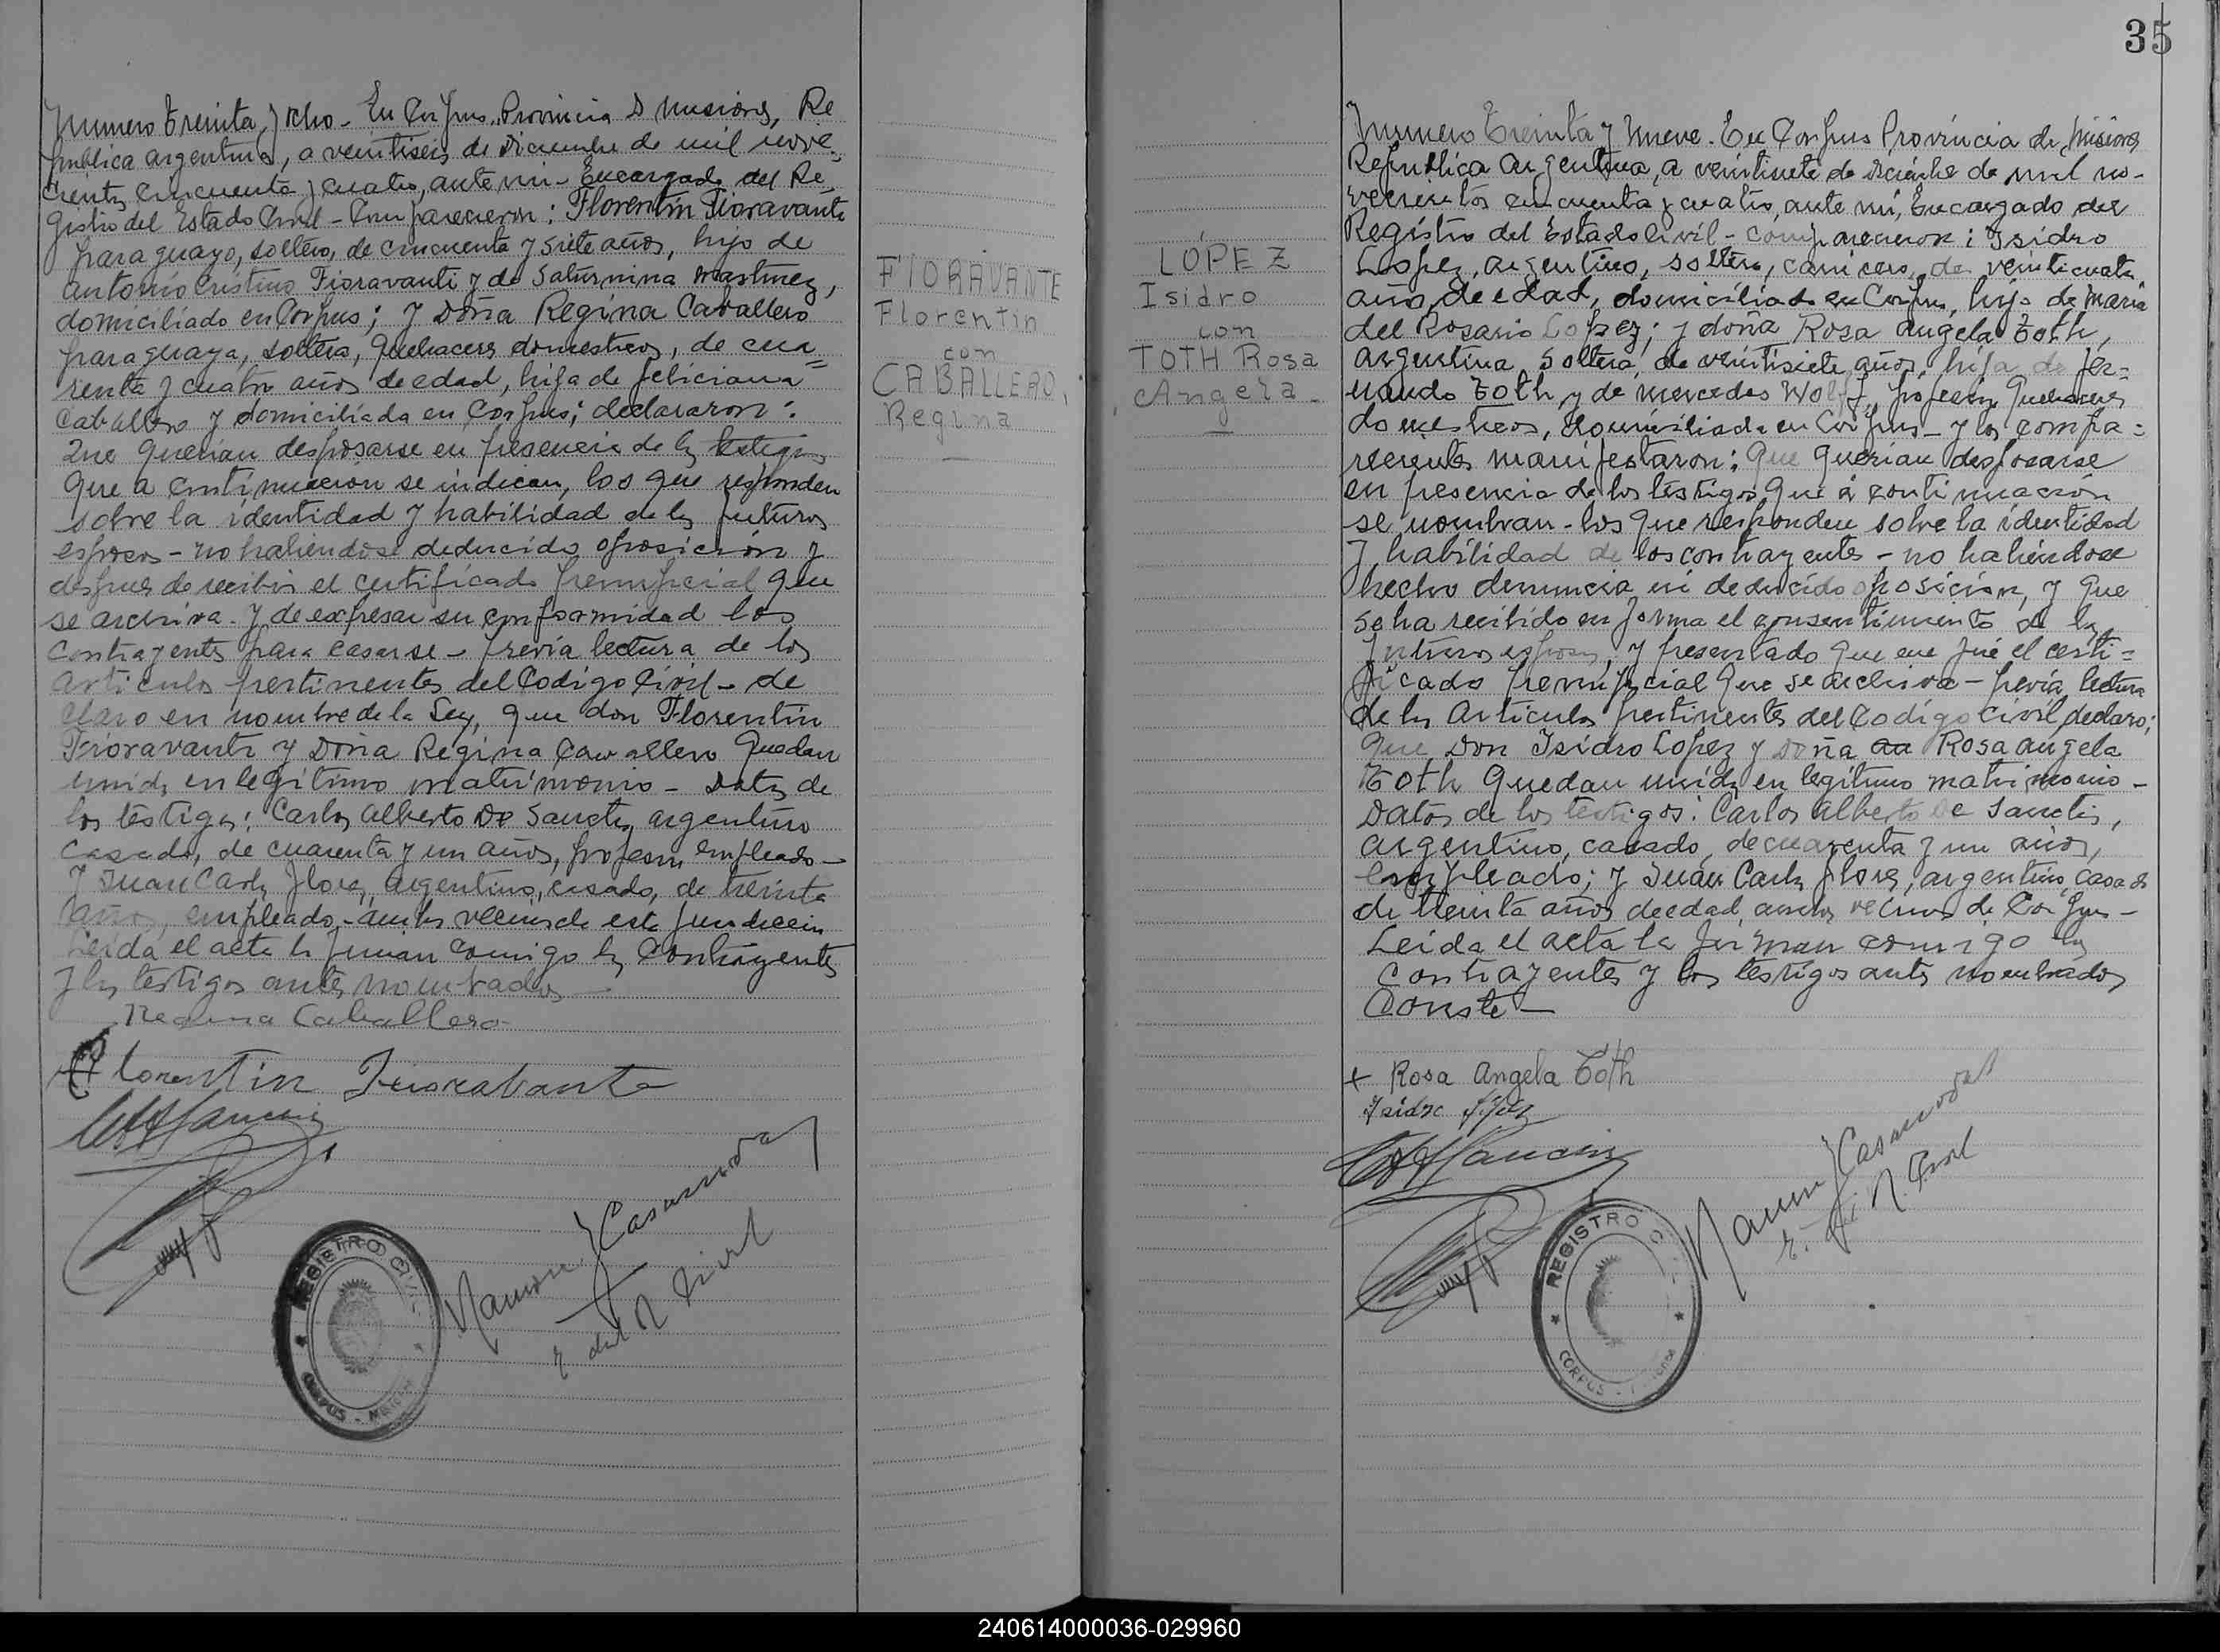 Numero Treinta y ocho - En Corpus, Provincia D Misiones, Re
publica argentina, a veintiseis de Diciembre de mil nove-
cientos cincuenta y cuatro, ante mi - Encargado del Re
gistro del Estado Civil - Comparecieron: Florentin Fioravante
paraguayo, soltero, de cincuenta y siete años, hijo de
antonio Cristino Fioravanti y de Saturnina Martinez,
domiciliado en Corpus; y Doña Regina Caballero
paraguaya, soltera, Quehaceres domesticos, de cua=
renta y cuatro años de edad, hija de feliciana
Caballero y domiciliada en Corpus; declararon:
Que Querian desposarse en presencia de los testigos
Que a continuacion se indican, los que responden
sobre la identidad y habilidad de los futuros
esposos - no habiendose deducido oposición y
despues de recibir el certificado prenupcial que
se archiva - y de expresar su conformidad los
contrayentes para casarse - previa lectura de los
articulos pertinentes del Codigo Civil - de
claro en nombre de la Ley, que don Florentin
Fioravanti y Doña Regina Cavallero Quedan
unidos en legítimo matrimonio - Datos de
los testigos: Carlos Alberto De Sanctis, argentino
casado, de cuarenta y un años, profesion empleado -
y Juan Carlos flores, argentino, casado, de treinta
años, empleado - ambos vecinos de esta jurisdiccion
Leida el acta la firman conmigo los Contrayentes
y los testigos antes nombrados -
Regina Caballero
Florentin Fiorabante
Ramon Casanova
E. del R Civil
REGISTRO CIVIL
CORPUS - MISIONES
FIORAVANTE
Florentin
con
CABALLERO,
Regina
35
LÓPEZ
Isidro
con
TOTH Rosa
Angela -
Numero Treinta y Nueve. En Corpus Provincia de Misiones
República argentina, a veintisiete de diciembre de mil no-
vecientos cincuenta y cuatro, ante mi, Encargado del
Registro del Estado Civil - comparecieron: Isidro
Lopez, argentino, soltero, carnicero, de veinticuatro
años de edad, domiciliado en Corpus, hijo de Maria
del Rosario Lopez; y doña Rosa angela Toth,
argentina, soltera, de veintisiete años, hija de fer=
nando Toth y de mercedes Wolff, profesion Quehaceres
domesticos, domiciliada en Corpus - y los compa=
recientes manifestaron: Que Querian desposarse
en presencia de los testigos Que á continuación
se nombran - los que responden sobre la identidad
y habilidad de los contrayentes - no habiendose
hecho denuncia ni deducido oposicion, y Que
se ha recibido en forma el consentimiento de los
futuros esposos, y presentado Que me fué el certi=
ficado prenupcial Que se archiva - previa lectura
de los Articulos pertinentes del Codigo Civil, declaro;
que Don Isidro Lopez y Doña Rosa angela
Toth Quedan unidos en legitimo matrimonio -
Datos de los testigos: Carlos Alberto De Sanctis,
argentino, casado, de cuarenta y un años,
empleado; y Juan Carlos flores, argentino, casado
de treinta años de edad, ambos vecinos de Corpus -
Leida el acta la firman conmigo los
contrayentes y los testigos antes nombrados
Conste -
+ Rosa Angela Toth
Isidro López
Ramon Casanova
E. del R. Civil
REGISTRO C
CORPUS - MISIONES
240614000036-029960